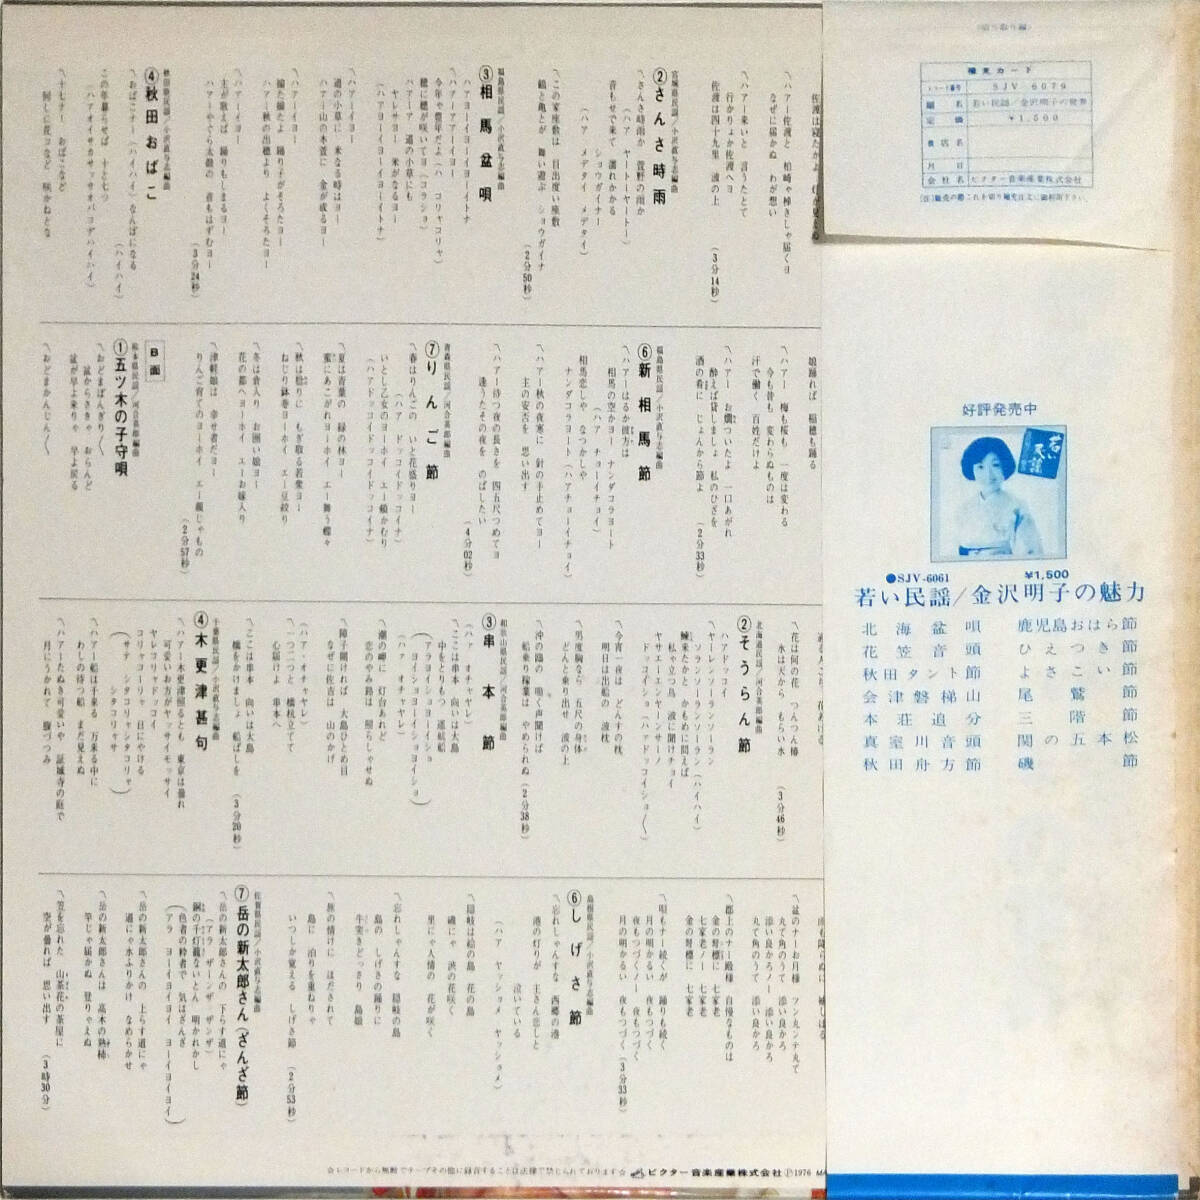 補充カード
レコード番号 SJV-6079
題名 若い民謡/金沢明子の世界
定価 ¥1,500
貴店名
月日
会社名 ビクター音楽産業株式会社
好評発売中
若い民謡
●SJV-6061 ¥1,500
若い民謡/金沢明子の魅力
北海盆唄 鹿児島おはら節
花笠音頭 ひえつき節
秋田タント節 よさこい節
会津磐梯山 尾鷲節
本荘追分 三階節
真室川音頭 関の五本松
秋田舟方節 磯節
佐渡は寝たかよ 灯が見えぬ
〽ハァー佐渡と 柏崎ゃ棹さしゃ届くヨ
なぜに届かぬ わが想い
〽ハァー来いと 言うたとて
行かりょか佐渡へヨ
佐渡は四十九里 波の上
(3分14秒)
②さんさ時雨
宮城県民謡/小沢直与志編曲
〽さんさ時雨か 萱野の雨か
(ハァ ヤートーヤートー)
音もせで来て 濡れかかる
ショウガイナー
(ハァ メデタイ メデタイ)
〽この家座敷は 目出度い座敷
鶴と亀とが 舞い遊ぶ ショウガイナ
(2分50秒)
③相馬盆唄
福島県民謡/小沢直与志編曲
〽ハァヨーイヨーイヨーイトナ
ハァーアアーイヨー
今年ゃ豊年だよ(ハ コリャコリャ)
穂に穂が咲いてヨ(コラショ)
ハァーア 道の小草にも
ヤレサヨー 米がなるヨー
(ハァヨーイヨーイヨーイトナ)
〽ハァーイヨー
道の小草に 米なる時はヨー
ハァー山の木萱に 金が成るヨー
〽ハァーイヨー
揃た揃たよ 踊り子がそろたヨー
ハァー秋の出穂より よくそろたヨー
〽ハァーイヨー
主が歌えば 踊りもしまるヨー
ハァーやぐら太鼓の 音もはずむヨー
(3分24秒)
④秋田おばこ
秋田県民謡/小沢直与志編曲
〽おばこナー(ハイハイ)なんぼになる
(ハイハイ)
この年暮らせば 十と七つ
(ハァオイサカサッサオバコデハイハイ)
〽十七ナー おばこなど
何しに花コなど 咲かねとな
娘踊れば 稲穂も踊る
〽ハァー 梅も桜も 一度は変わる
今も昔も 変わらぬものは
汗で働く 百姓だけよ
〽ハァー お燗ついたよ 一口あがれ
酔えば貸しましょ 私のひざを
酒の肴に じょんから節よ
(2分33秒)
⑥新相馬節
福島県民謡/小沢直与志編曲
〽ハァーはるか彼方は
相馬の空かヨー ナンダコラヨート
(ハァ チョーイチョイ)
相馬恋しや なつかしや
ナンダコラヨート(ハァチョーイチョイ)
〽ハァー秋の夜寒に 針の手止めてヨー
主の安否を 思い出す
〽ハァー待つ夜の長さを 四五尺つめてヨ
逢うたその夜を のばしたい
(4分02秒)
⑦りんご節
青森県民謡/河合英郎編曲
〽春はりんごの いと花盛りヨー
(ハァ ドッコイドッコイナ)
いとし乙女のヨーホイ エー頬かむり
(ハァドッコイドッコイドッコイナ)
〽夏は青葉の 緑の林ヨー
蜜にあこがれヨーホイ エー舞う蝶々
〽秋は稔りに もぎ取る若衆ヨー
ねじり鉢巻ヨーホイ エー豆絞り
〽冬は倉入り お囲い娘ヨー
花の都へヨーホイ エーお嫁入り
〽津軽娘は 幸せ者だヨー
りんご育てのヨーホイ エー親じゃもの
(2分57秒)
B面
①五ツ木の子守唄
熊本県民謡/河合英郎編曲
〽おどまぼんぎり〱
盆からさきゃ おらんど
盆が早よ来りゃ 早よ戻る
〽おどまかんじん〱
〽花は何の花 つんつん椿
水は天から もらい水
(3分46秒)
②そうらん節
北海道民謡/河合英郎編曲
ハァドッコイ
〽ヤーレンソーランソーラン
ソーランソーランソーラン(ハイハイ)
鰊来たかと かもめに問えば
私ゃ立つ鳥 波に聞けチョイ
ヤサエーエンヤーンサーノ
ドッコイショ(ハァドッコイショ〱)
〽今宵一夜は どんすの枕
明日は出船の 波枕
〽男度胸なら 五尺の身体
どんと乗り出せ 波の上
〽沖の鴎の 唄く声聞けば
船乗り稼業は やめられぬ(2分38秒)
③串本節
和歌山県民謡/河合英郎編曲
(ハァ オチャヤレ)
〽ここは串本 向いは大島
中をとりもつ 巡航船
(アラヨイショヨーイショ
ヨイショヨイショヨーイショ)
(ハァ オチャヤレ)
〽潮の岬に 灯台あれど
恋のやみ路は 照らしゃせぬ
〽障子開ければ 大島ひとめ目
なぜに佐吉は 山のかげ
〽一つ二つと 橋杭立てて
心届けよ 串本へ
(ハァ オチャヤレ)
〽ここは串本 向いは大島
橋をかけましょ 船ばしを
(3分20秒)
④木更津甚句
千葉県民謡/小沢直与志編曲
〽ハァー木更津照るとも 東京は曇れ
可愛いお方がヤッサイモッサイ
ヤレコリャドッコイ
コリャコーリャ 日にやける
〽ハァー船は手来る 万来る中に
わしの待つ船 まだ見えぬ
〽ハァーたぬき可愛いや 証城寺の庭で
月にうかれて 腹づつみ
雨も降らぬに 袖しぼる
〽盆のナーお月様 ツン丸ンテ丸て
丸て角のうて 添い良かろ
添い良かろノー 添い良かろ
丸て角のうて 添い良かろ
〽郡上のナー殿様 自慢なものは
金の弩標に 七家老
七家老ノー 七家老
金の弩標に 七家老
〽唄もナー続くが 踊りも続く
月の明かるい 夜もつづく
夜もつづくノー 夜もつづく
月の明かるい 夜もつづく
(3分33秒)
⑥しげさ節
島根県民謡/小沢直与志編曲
〽忘れしゃんすな 西郷の港
港の灯りが 主さん恋しと
泣いている
(ハァ ヤッショメ ヤッショメ)
〽隠岐は絵の島 花の島
磯にゃ 波の花咲く
里にゃ人情の 花が咲く
〽忘れしゃんすな 隠岐の島
島の しげさの踊りに
牛突きどっさり 島娘
〽旅の情けに ほだされて
島に 泊りを重ねりゃ
いつしか覚える しげさ節
(2分53秒)
⑦岳の新太郎さん(ざんざ節)
佐賀県民謡/小沢直与志編曲
〽岳の新太郎さんの 下らす道にゃ
(アラ ザーンザ ザンザ)
銅の千灯籠ないとん 明かれかし
(色者の粋者で 気はざんざ
アラ ヨーイヨイヨイ ヨーイヨイヨイ)
〽岳の新太郎さんの 上らす道にゃ
道にゃ水ふりかけ なめらかせ
〽岳の新太郎さんは 高木の熟柿
竿じゃ届かぬ 登りゃえぬ
〽笠を忘れた 山茶花の茶屋に
空が曇れば 思い出す
(3時30分)
☆レコードから無断でテープその他に録音することは法律で禁じられております☆ ビクター音楽産業株式会社 Ⓟ1976